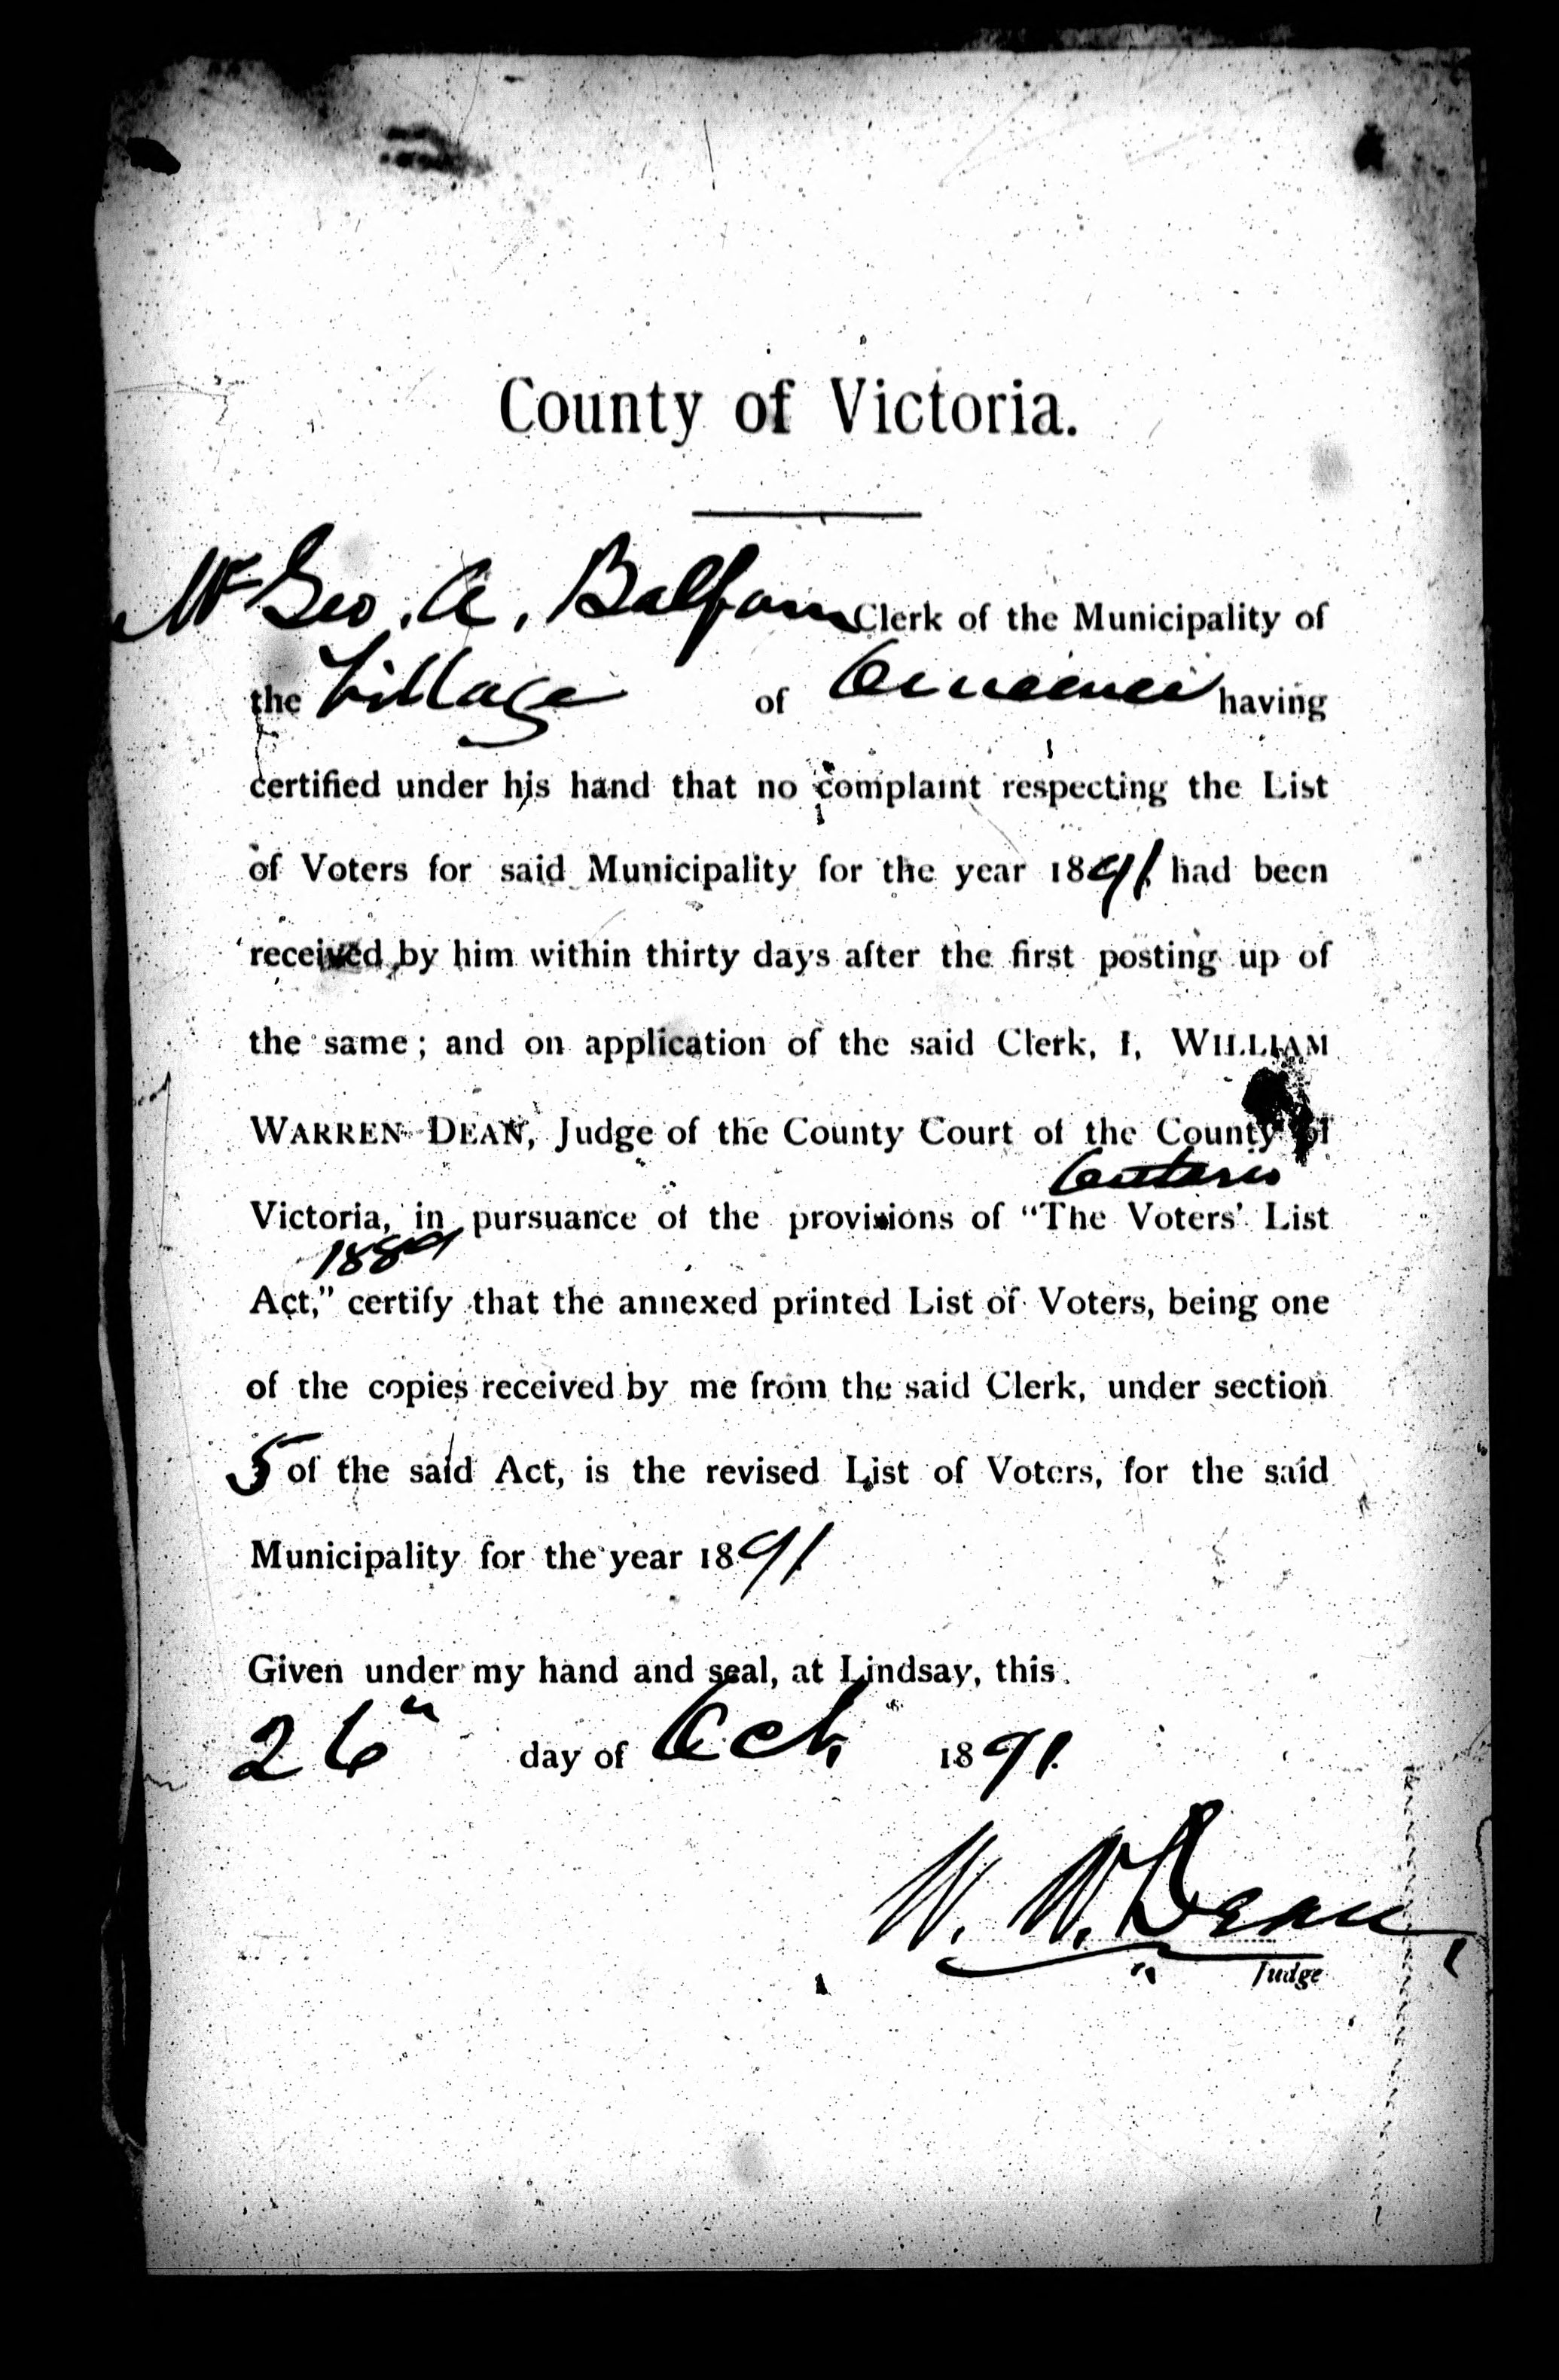 County of Victoria.
Mr Geo. A. Balfour Clerk of the Municipality of
the Village of Omemee having
certified under his hand that no complaint respecting the List
of Voters for said Municipality for the year 1891 had been
received by him within thirty days after the first posting up of
the same; and on application of the said Clerk, I, WILLIAM
WARREN DEAN, Judge of the County Court of the County of
Ontario
Victoria, in pursuance of the provisions of "The Voters' List
1889
Act," certify that the annexed printed List of Voters, being one
of the copies received by me from the said Clerk, under section
5 of the said Act, is the revised List of Voters, for the said
Municipality for the year 1891
Given under my hand and seal, at Lindsay, this
26" day of Oct. 1891.
W. W. Dean,
Judge